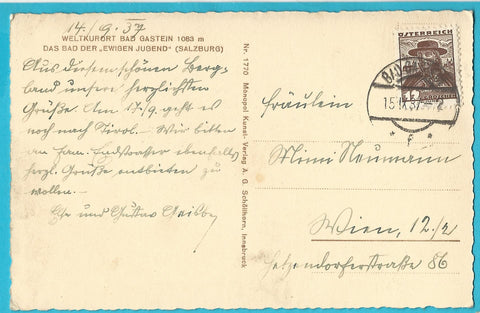 14./9.37
WELTKURORT BAD GASTEIN 1083 m
DAS BAD DER „EWIGEN JUGEND“ (SALZBURG)
Aus diesem schönen Berg-
land unsere herzlichsten
Grüße. Am 17./9. geht es
noch nach Tirol. – Wir bitten
an Fam. ebenfalls
herzl. Grüße entbieten zu
wollen. –
und Gustav
Nr. 1770 Monopol Kunst-Verlag A. G. Schöllhorn, Innsbruck
ÖSTERREICH
BAD
15.IX.37
Fräulein
Mimi Neumann
Wien, 12./2
Hetzendorferstraße 86